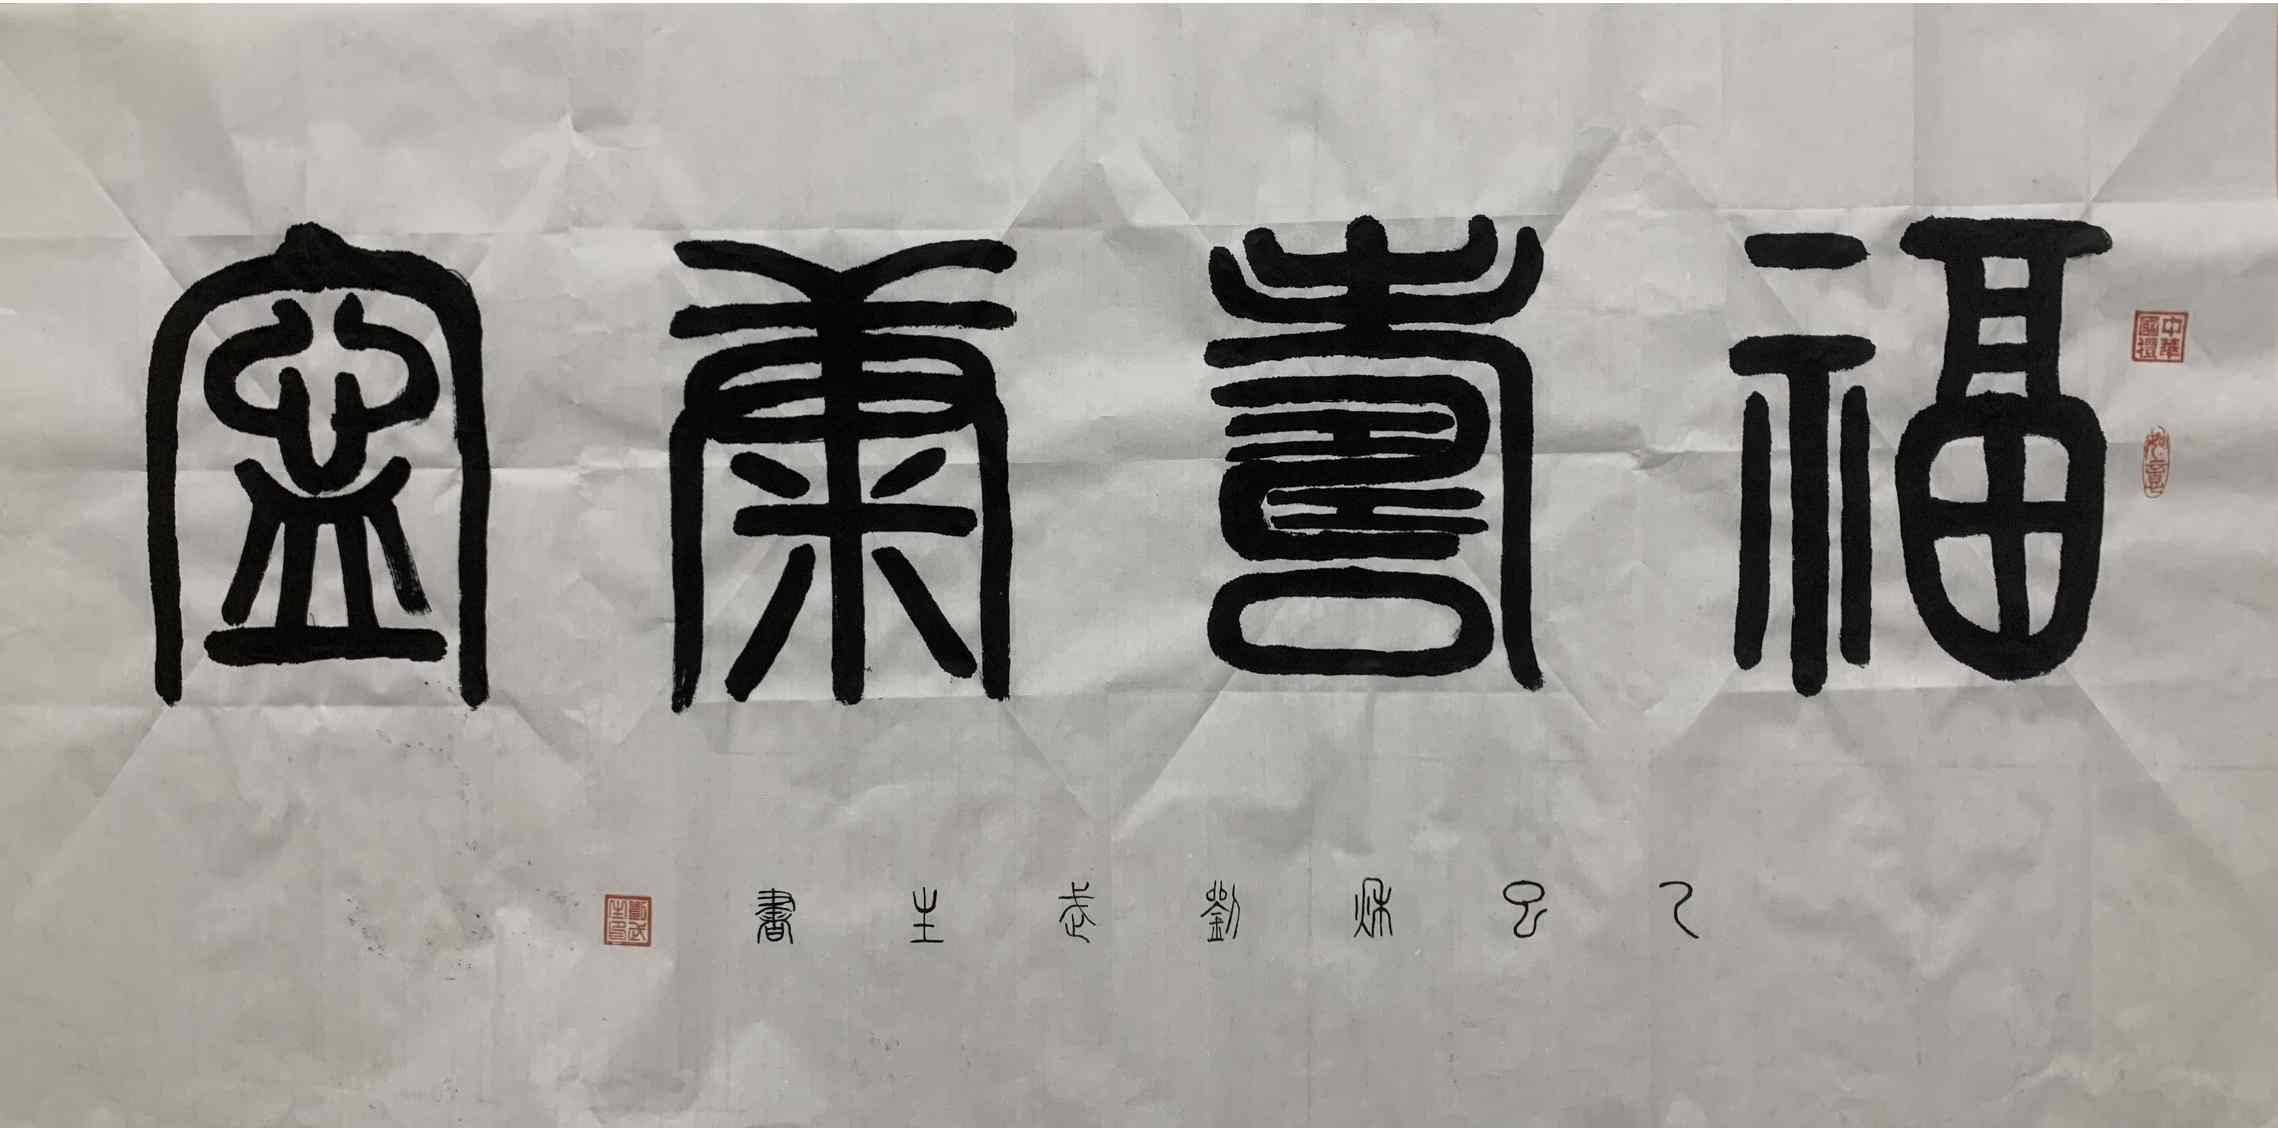 福壽康寍
乙巳秋劉武生書
中華國禮
如意
劉武生印